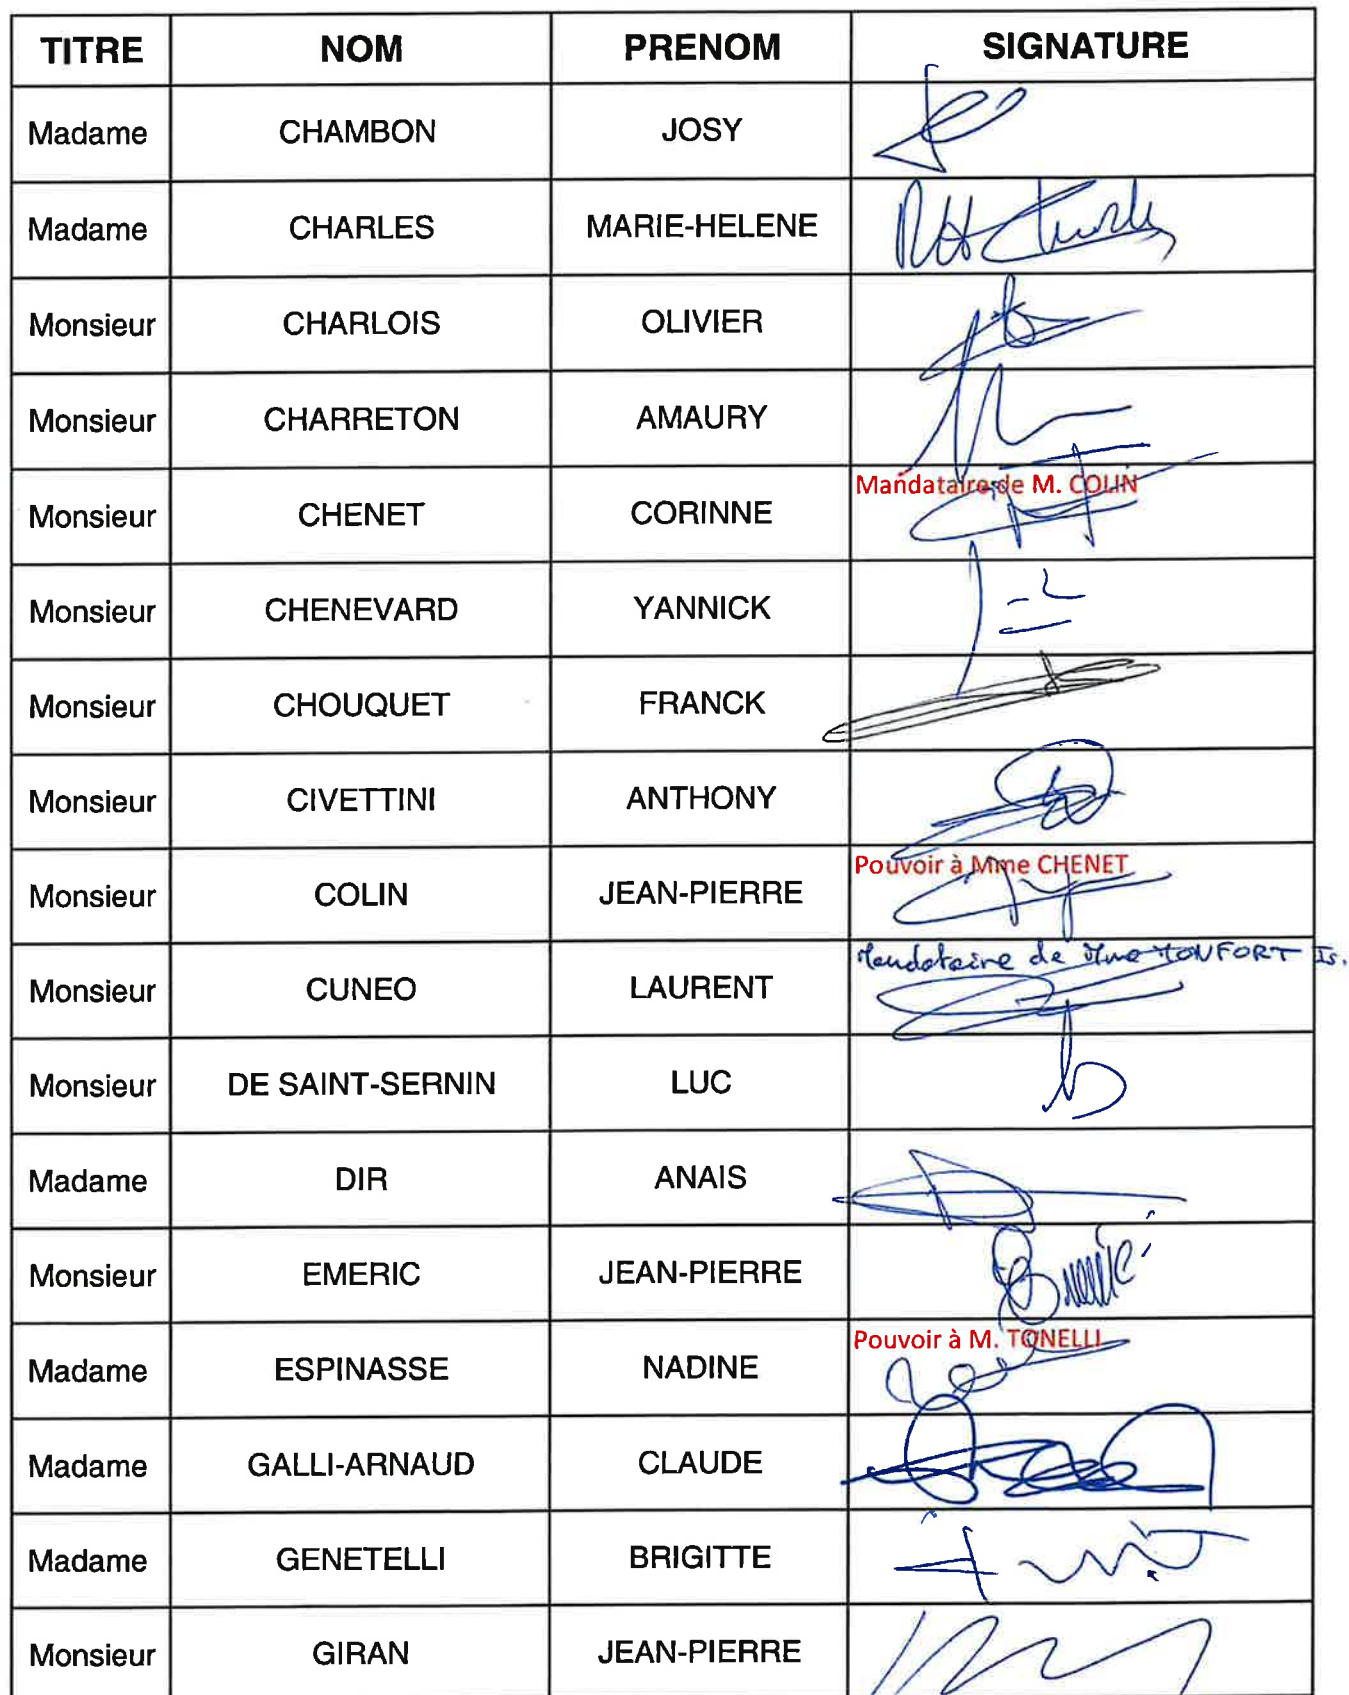 TITRE NOM PRENOM SIGNATURE
Madame CHAMBON JOSY
Madame CHARLES MARIE-HELENE
Monsieur CHARLOIS OLIVIER
Monsieur CHARRETON AMAURY
Monsieur CHENET CORINNE Mandataire de M. COLIN
Monsieur CHENEVARD YANNICK
Monsieur CHOUQUET FRANCK
Monsieur CIVETTINI ANTHONY
Monsieur COLIN JEAN-PIERRE Pouvoir à Mme CHENET
Monsieur CUNEO LAURENT Mandataire de Mme MONFORT Is.
Monsieur DE SAINT-SERNIN LUC
Madame DIR ANAIS
Monsieur EMERIC JEAN-PIERRE
Madame ESPINASSE NADINE Pouvoir à M. TONELLI
Madame GALLI-ARNAUD CLAUDE
Madame GENETELLI BRIGITTE
Monsieur GIRAN JEAN-PIERRE